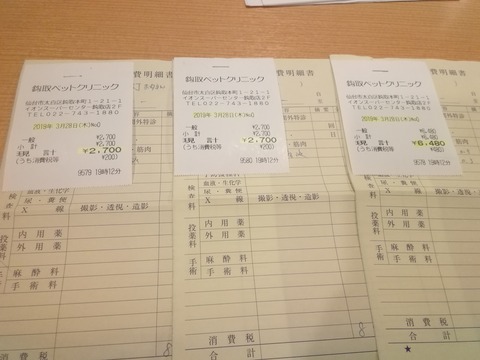 鈎取ペットクリニック
仙台市太白区鈎取本町1-21-1
イオンスーパーセンター鈎取店2F
TEL022-743-1880
2019年 3月28日(木)
一般 ¥2,700
小計 ¥2,700
現計 ¥2,700
(うち消費税等 ¥200)
9579 19時12分
鈎取ペットクリニック
仙台市太白区鈎取本町1-21-1
イオンスーパーセンター鈎取店2F
TEL022-743-1880
2019年 3月28日(木)
一般 ¥2,700
小計 ¥2,700
現計 ¥2,700
(うち消費税等 ¥200)
9580 19時12分
鈎取ペットクリニック
仙台市太白区鈎取本町1-21-1
イオンスーパーセンター鈎取店2F
TEL022-743-1880
2019年 3月28日(木)
一般 ¥6,480
小計
現計 ¥6,480
(うち消費税等
19時12分
費明細書
筋肉
検査料
尿・糞便
X線 撮影・透視・造影
投薬料
内用薬
外用薬
手術
麻酔料
手術料
消費税
合計
費明細書
筋肉
検査料
血液・生化学
尿・糞便
X線 撮影・透視・造影
投薬料
内用薬
外用薬
手術
麻酔料
手術料
消費税 8
合計
費明細書
検査料
血液・生化学
尿・糞便
X線
投薬料
内用薬
外用薬
手術
麻酔料
手術料
消費税
合計
★